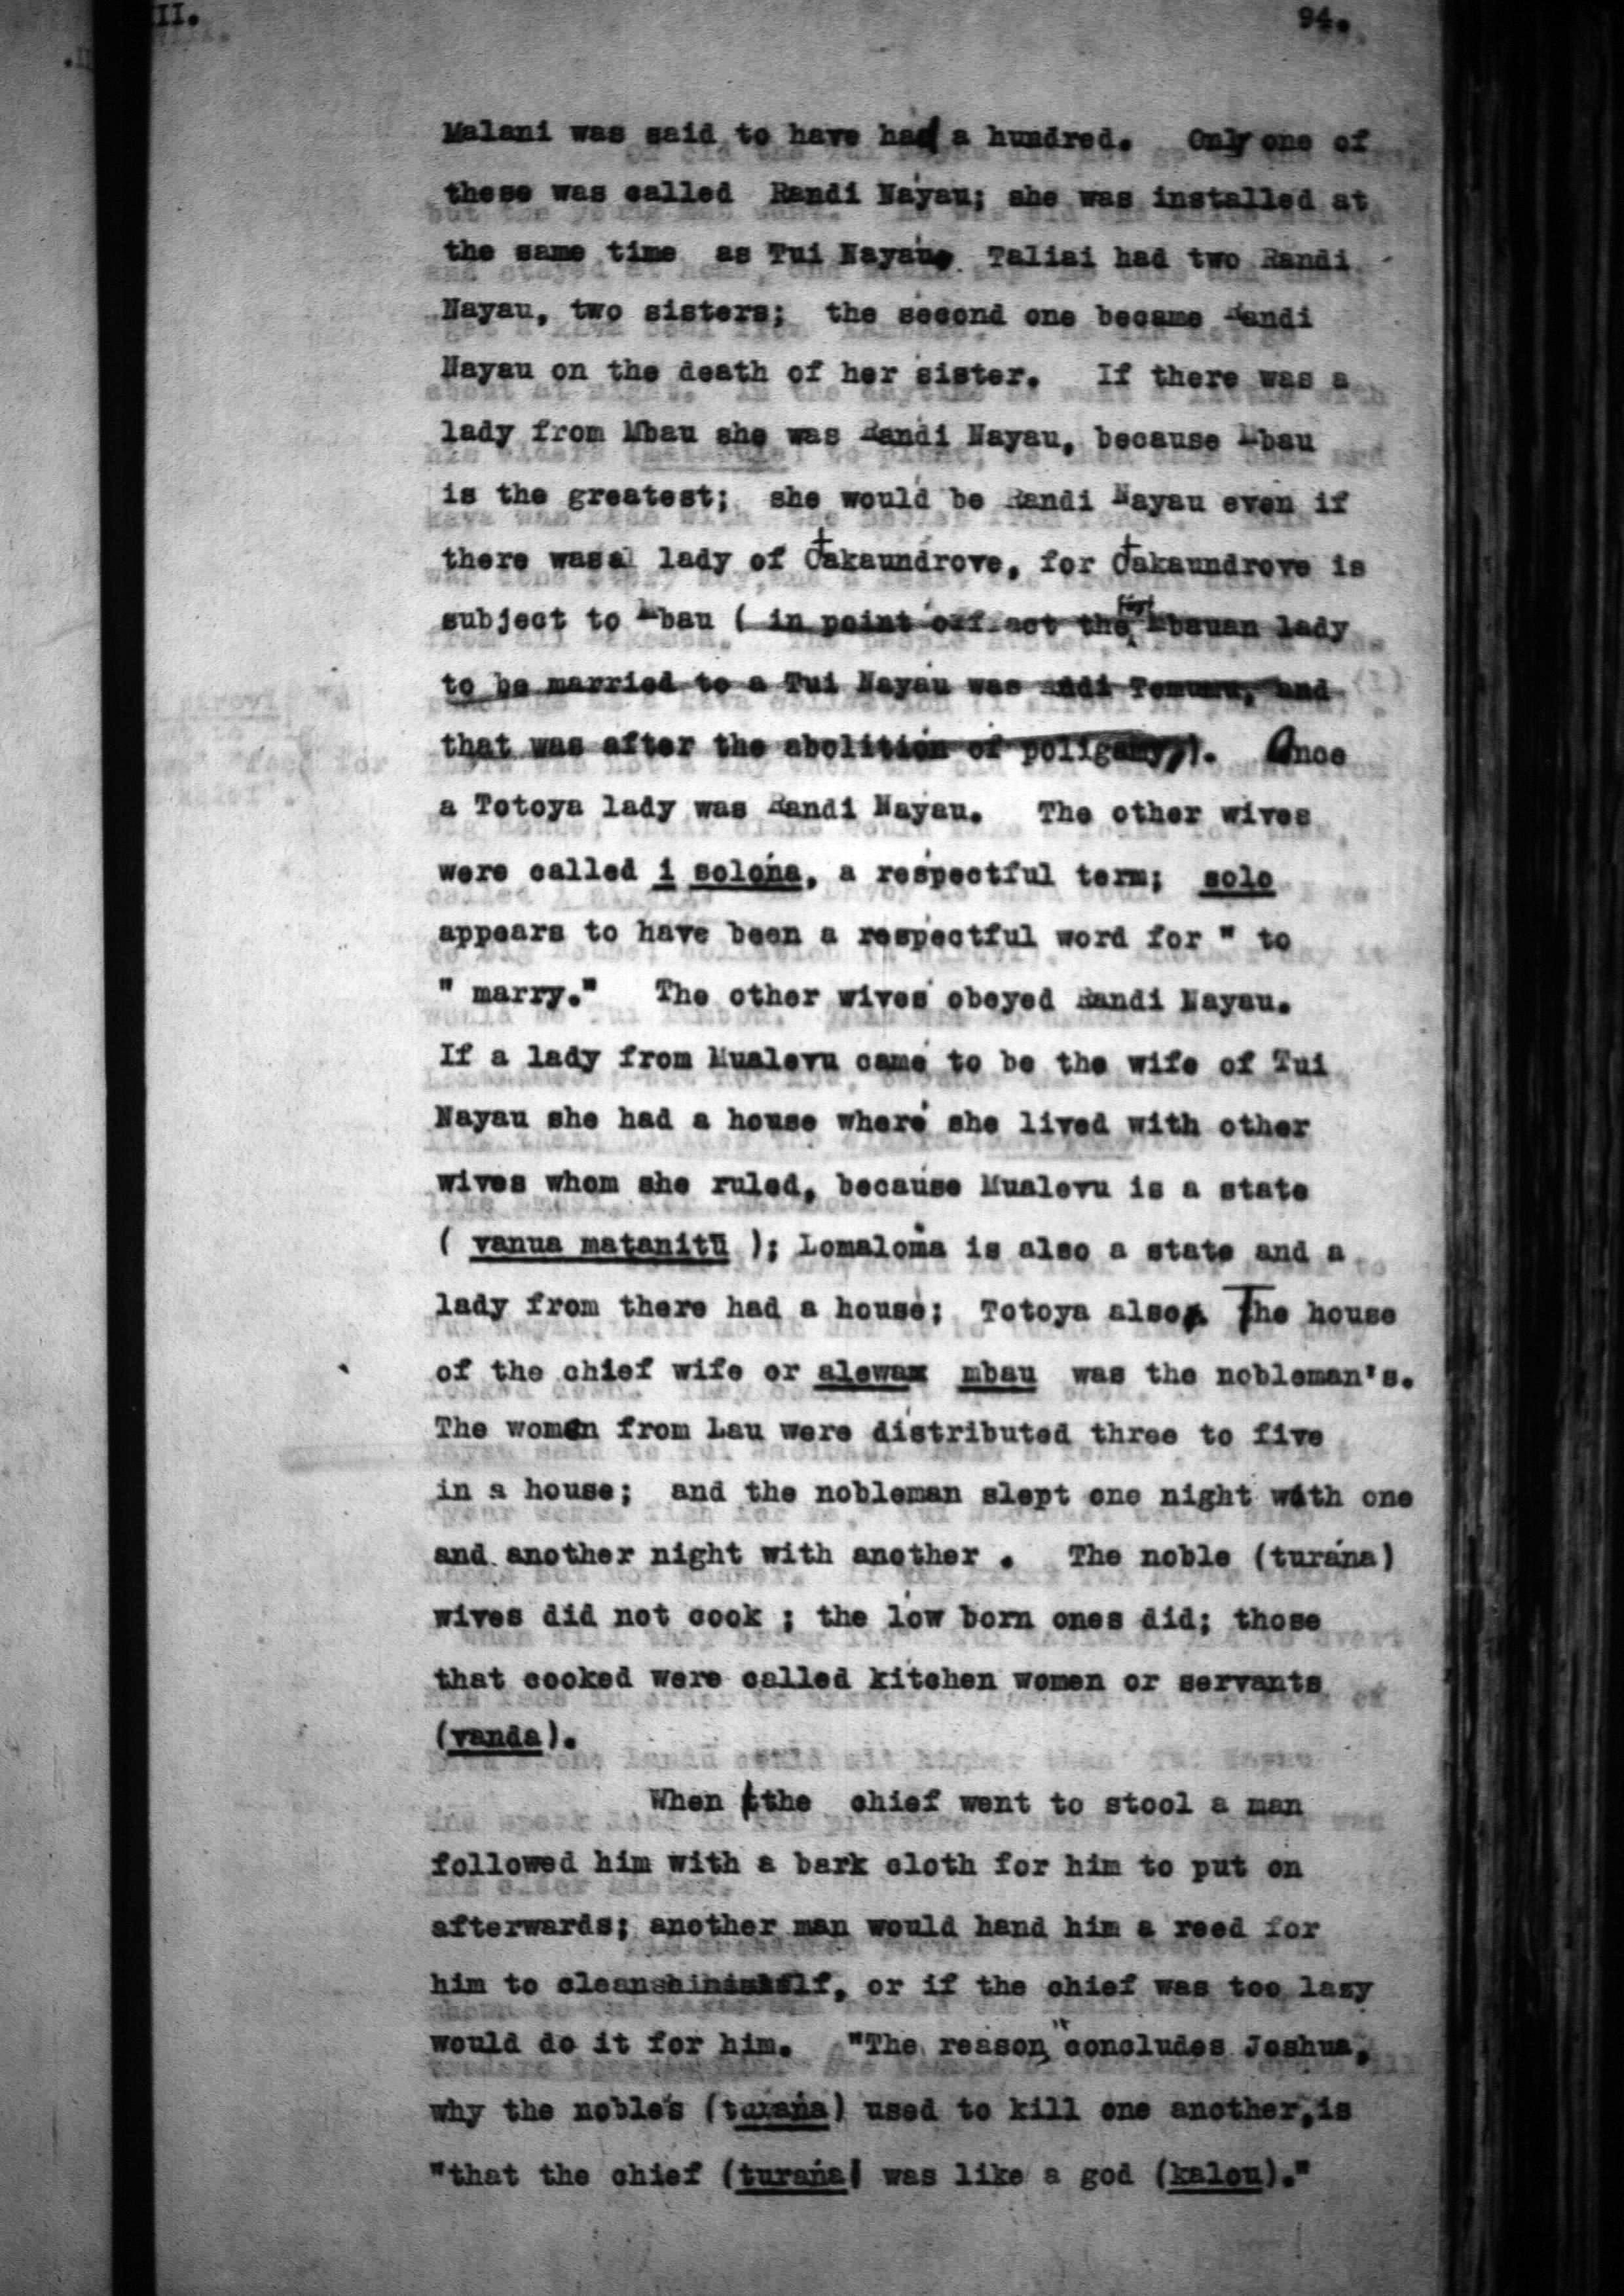 II.
94.
Malani was said to have had a hundred. Only one of
these was called Randi Nayau; she was installed at
the same time as Tui Nayau. Taliai had two Randi
Nayau, two sisters; the second one became Randi
Nayau on the death of her sister. If there was a
lady from Mbau she was Randi Nayau, because Mbau
is the greatest; she would be Randi Nayau even if
there was a lady of Cakaundrove, for Cakaundrove is
subject to Mbau ( in point off act the first Mbauan lady
to be married to a Tui Nayau was Andi and
that was after the abolition of poligamy). Once
a Totoya lady was Randi Nayau. The other wives
were called i soloṅa, a respectful term; solo
appears to have been a respectful word for " to
" marry." The other wives obeyed Randi Nayau.
If a lady from Mualevu came to be the wife of Tui
Nayau she had a house where she lived with other
wives whom she ruled, because Mualevu is a state
( vanua matanitū ); Lomaloma is also a state and a
lady from there had a house; Totoya also. The house
of the chief wife or alewa mbau was the nobleman's.
The women from Lau were distributed three to five
in a house; and the nobleman slept one night with one
and another night with another . The noble (turaṅa)
wives did not cook ; the low born ones did; those
that cooked were called kitchen women or servants
(vanda).
When the chief went to stool a man
followed him with a bark cloth for him to put on
afterwards; another man would hand him a reed for
him to cleanshimself, or if the chief was too lazy
would do it for him. "The reason," concludes Joshua,
why the nobles (turaṅa) used to kill one another, is
"that the chief (turaṅa) was like a god (kalou)."